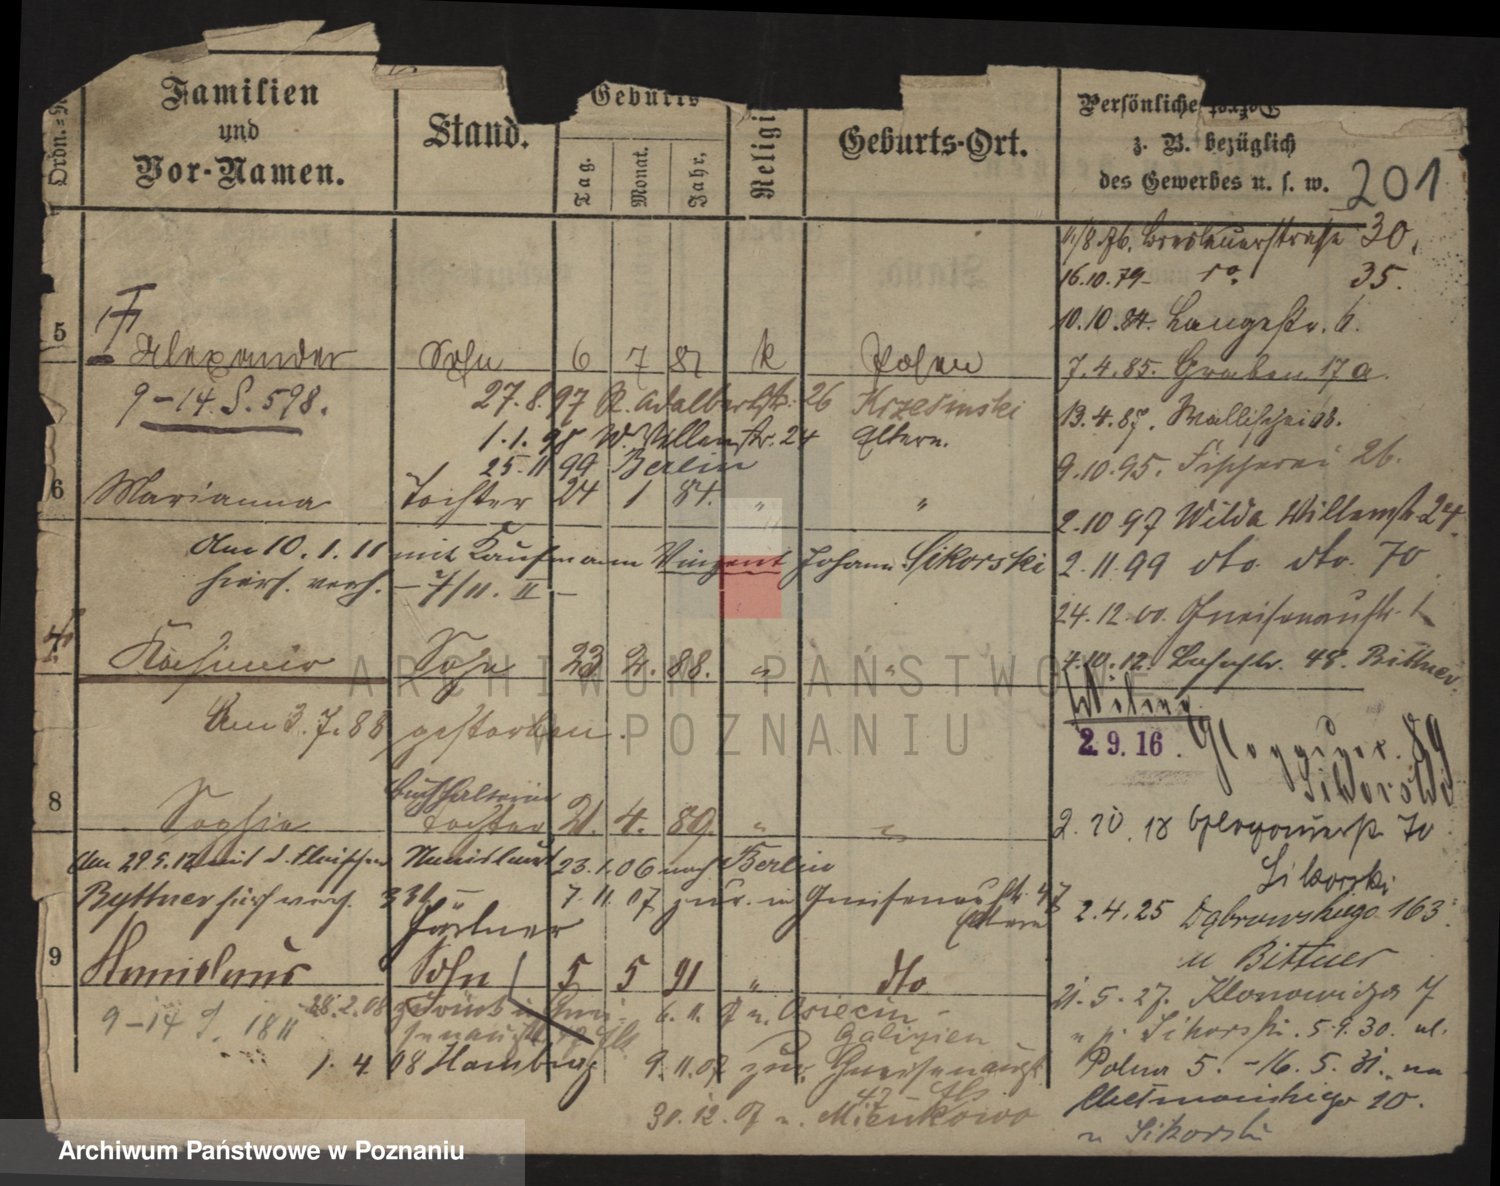 Ordn.=N
Familien
und
Vor-Namen.
Stand.
Geburts
Tag.
Monat.
Jahr.
Religi
Geburts-Ort.
Persönliche
z. B. bezüglich
des Gewerbes u. s. w.
201
11/8 76. Breslauerstraße 30.
16.10.79 - do. 35.
10.10.84. Langestr. 6.
7.4.85. Graben 17 a.
13.4.87. Wallischei
9.10.95. Fischerei 26.
2.10 97 Wilda Willemstr. 24.
2.11.99 dto. dto. 70
24.12.00. Gneisenaustr. 1
7.10.12. 48. Bittner.
2.9.16.
2.10.18 Glogauerstr. 70
Sikorski
2.4.25 Dąbrowskiego 163
u Bittner
21.5.27. Klonowicza 7
u p. Sikorski. 5.9.30. ul.
Polna 5. - 16.5.31. na
10.
u Sikorski
5
Alexander Sohn 6 7 82 k Posen
9-14. S. 598.
27.8.97 R. Adalbertstr. 26 Krzesinski
1.1.98 W. Willemstr. 24 Eltern.
25.11 99 Berlin
6 Marianna Tochter 24 1 84. " "
Am 10.1.11 mit Kaufmann Vinzent Johann Sikorski
hiers. verh. - 7/11. II -
7. Kasimir Sohn 23 2. 88. " "
Am 3.7.88 gestorben.
8
Buchhalterin
Sophie Tochter 21. 4. 89. " "
Am 29.5.12 mit d. Fleischer Stanislaus 23.1.06 nach Berlin
Byttner hier verh. 7.11.07 zur. in Gneisenaustr. 47
Eltern
Gärtner
9 Stanislaus Sohn 5 5 91 " dto
9-14 S. 1811
28.2.08 zurück 6.11. 07 n. Osiecin -
Galizien
1.4.08 Hamburg 9.11.07 zur. Gneisenaustr
47
30.12.07 n. Mienkowo
ARCHIWUM PAŃSTWOWE
W POZNANIU
Archiwum Państwowe w Poznaniu